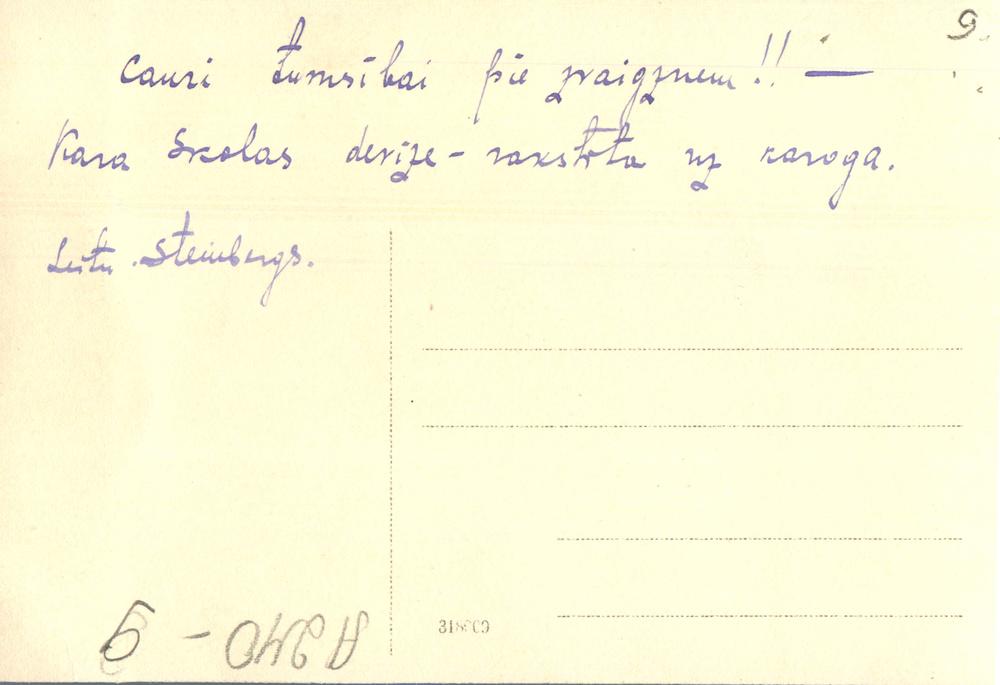 9.
Cauri tumsibai pie zvaigznem!! —
Kara Skolas devize - rakstita uz karoga.
Leitn. Steinbergs.
A 240 - 9